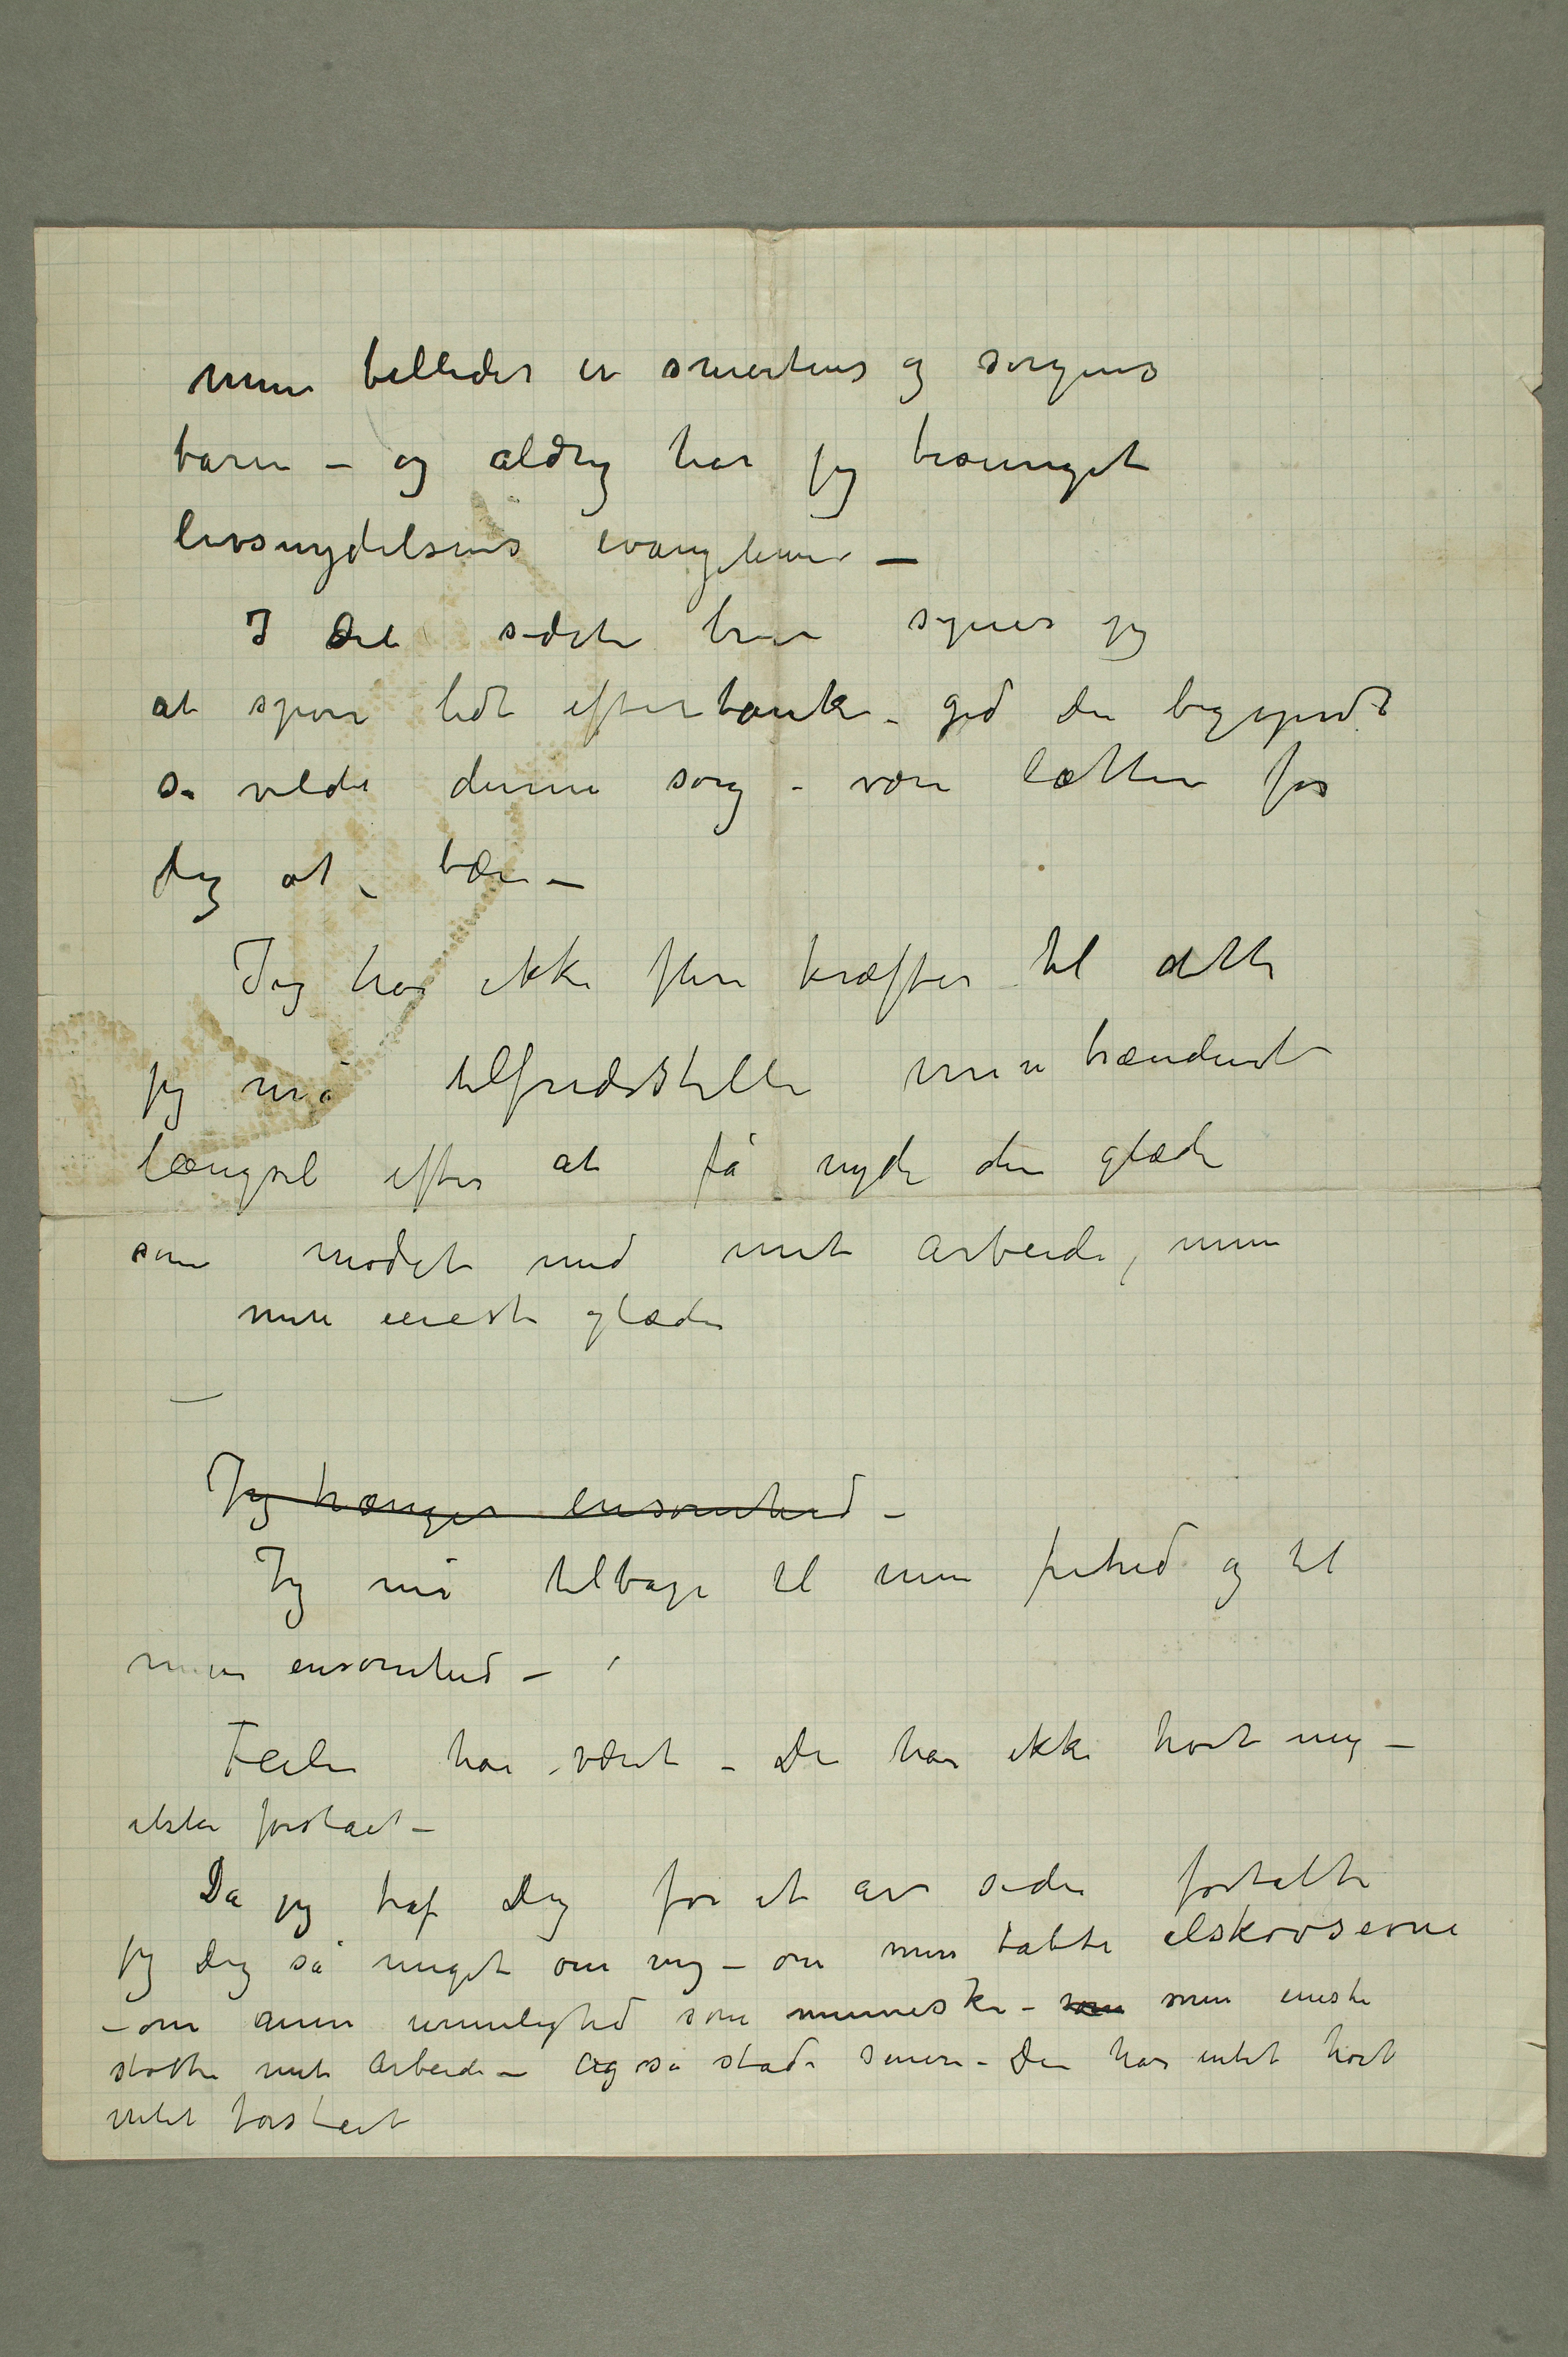 mine billeder er smertens og sorgens
barn – og aldrig har jeg besunget
livsnydelsens evangelium –
I det sidste brev synes jeg
at spore lidt eftertanke – gid du begynte
så vilde denne sorg – være lettere for
dig at bære –
Jeg har ikke flere kræfter til dette
jeg må tilfredsstille min brændende
længsel efter at få nyde den glæde
som modet med mit arbeide, min
min eneste glæde
—
Jeg trænger ensomhed –
Jeg må tilbage til min frihed og til
min ensomhed –
Feilen har været – Du har ikke hørt mig –
ikke forstået –
Da jeg traf Dig for et år siden fortalte
jeg Dig så meget om mig – om min tabte elskovsevne
– om min umulighed som menneske – som min eneste
støtte mit arbeide – og så stadi senere – Du har intet hørt
intet forstået